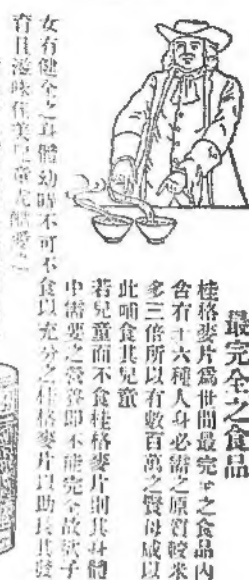 最完全之食品
桂格麥片爲世間最完全之食品內
含有十六種人身必需之原質較米
多三倍所以有數百萬之賢母咸以
此哺食其兒童
若兒童而不食桂格麥片則其身體
中需要之營養卽不能完全故欲子
女有健全之身體幼時不可不食以充分之桂格麥片以助長其發
育且滋味佳美兒童尤酷愛之